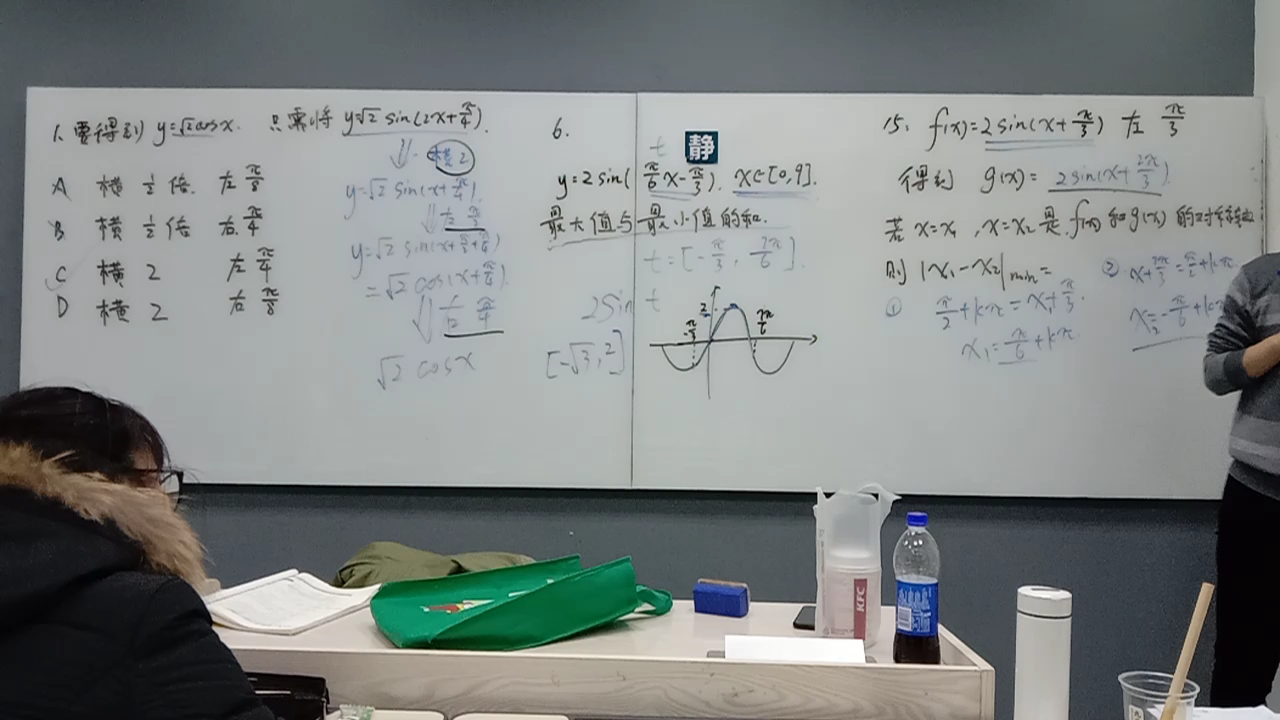 1. 要得到 y=√2cosx. 只需将 y=√2 sin(2x+π/4).
A 横 1/2倍. 左 π/8
B 横 1/2倍 右 π/4
C 横 2 左 π/4
D 横 2 右 π/8
横2
y=√2 sin(x+π/4)
左 π/4
y=√2 sin(x+π/4+π/4)
=√2 cos(x+π/4)
右 π/4
√2 cosx
6.
静
t
y=2sin(π/6x-π/3). x∈[0,9].
最大值与最小值的和.
t=[-π/3, 7π/6].
2sin t
[-√3,2]
2
-π/3
7π/6
15. f(x)=2sin(x+π/3) 左 π/3
得到 g(x)= 2sin(x+2π/3).
若 x=x₁, x=x₂ 是 f(x)和g(x)的对称轴
则 |x₁-x₂|min=
① π/2+kπ=x₁+π/3.
x₁=π/6+kπ
② x+2π/3=π/2+kπ
x₂=-π/6+kπ
KFC